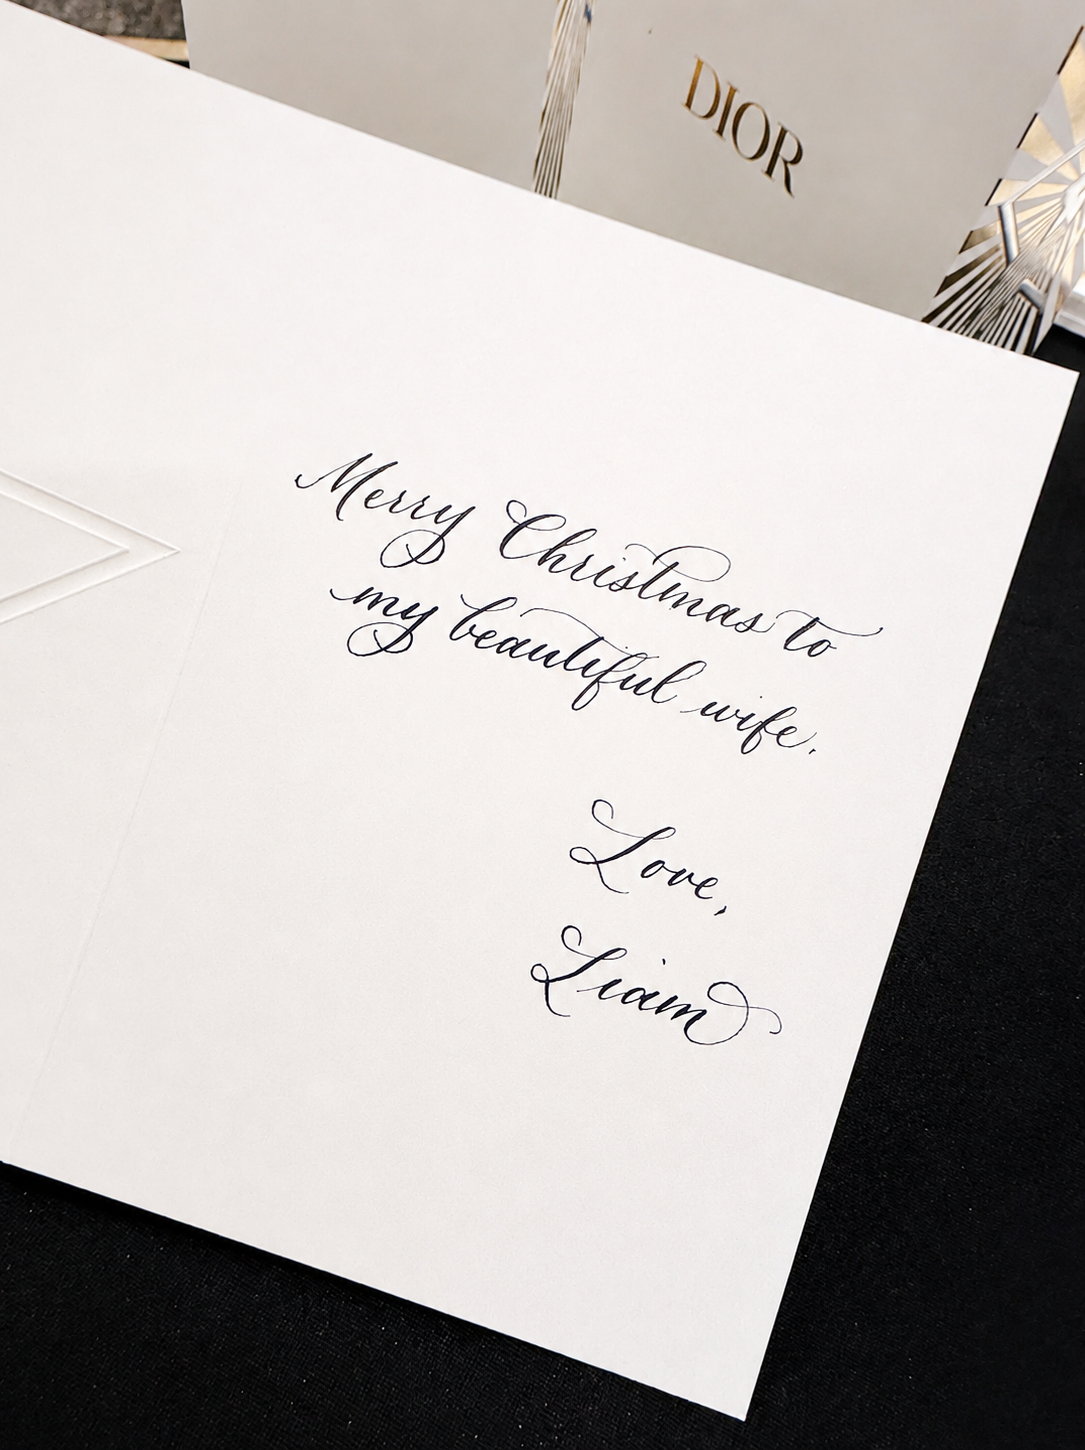 DIOR
Merry Christmas to
my beautiful wife.
Love,
Liam